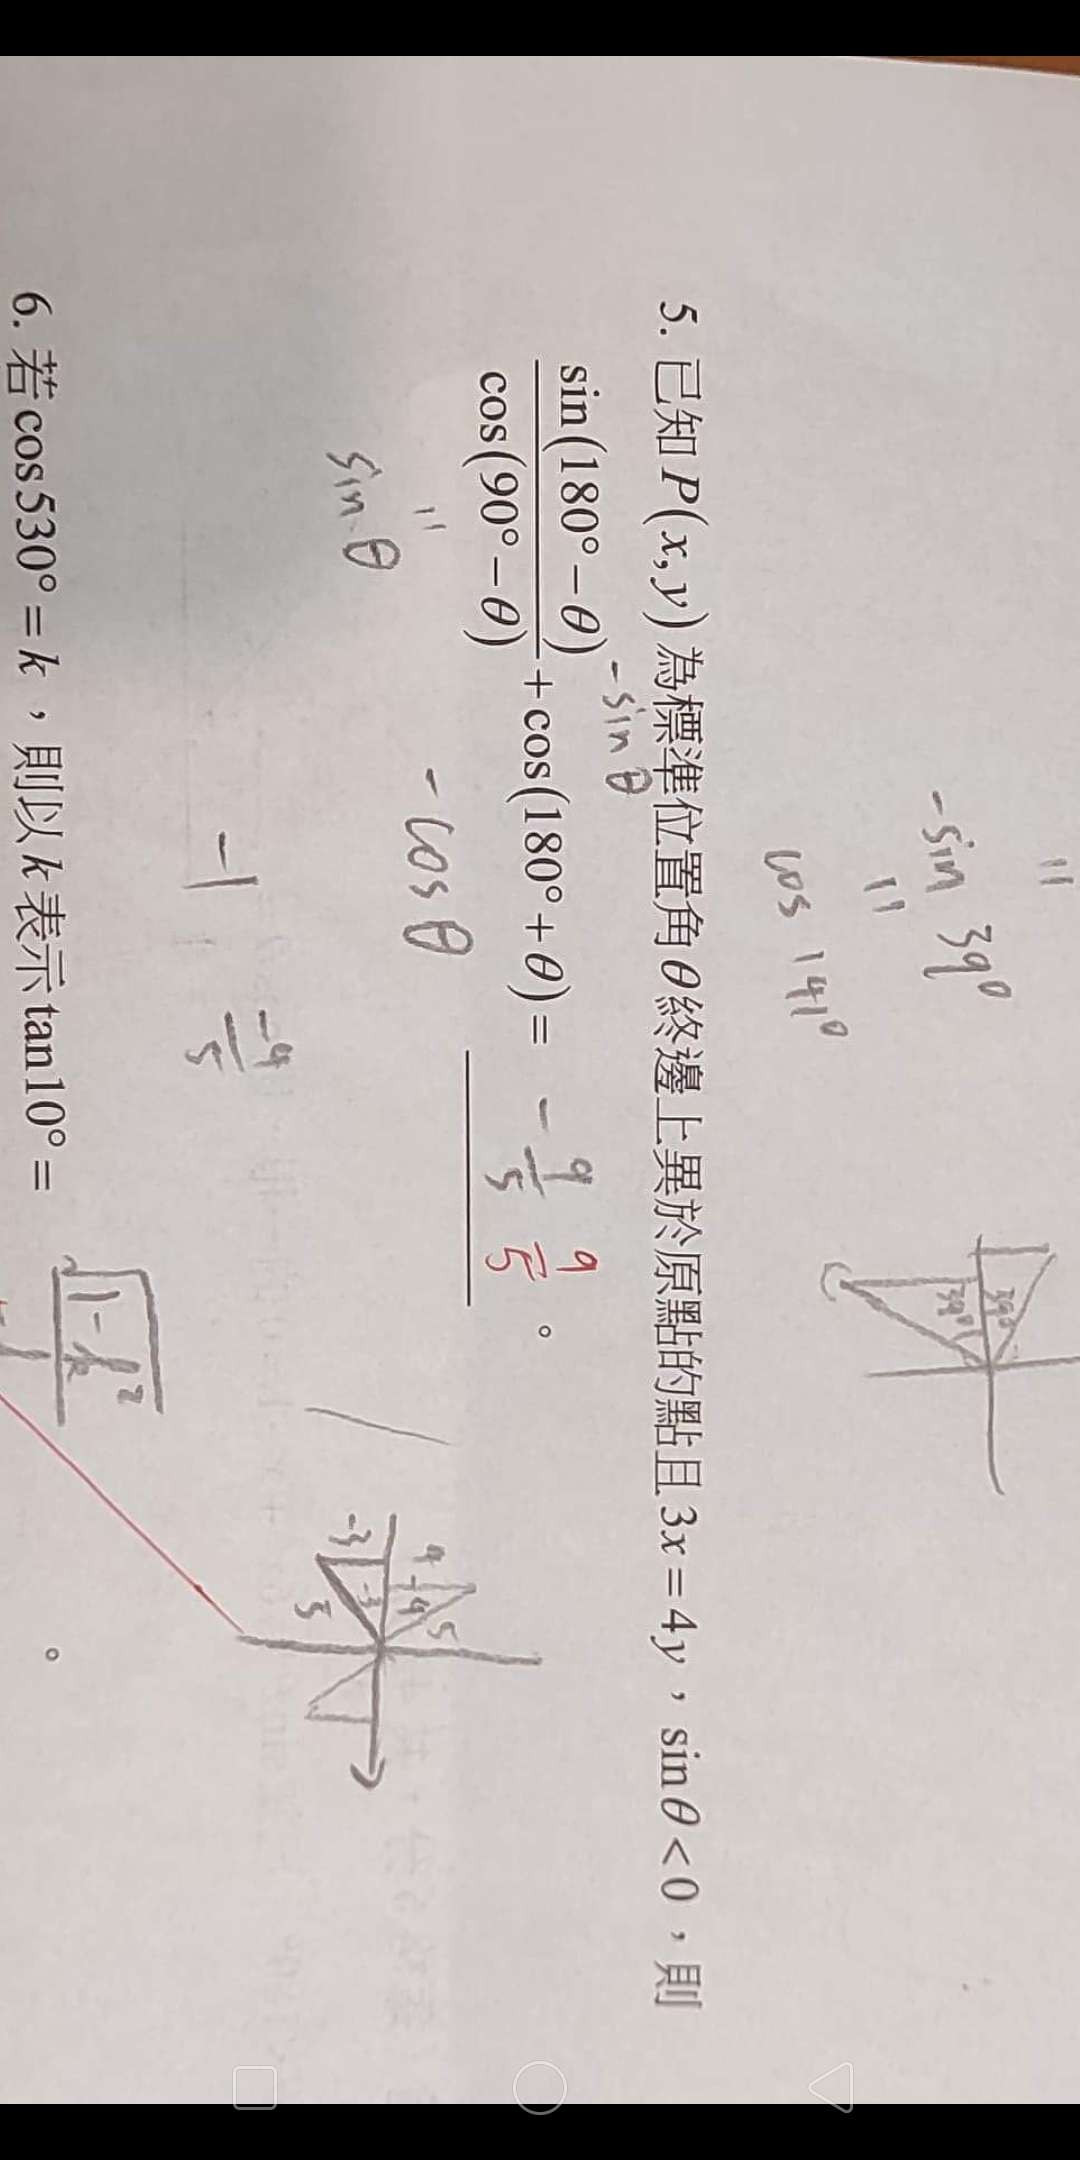 "
-sin 39°
"
cos 141°
39°
39°
5. 已知P(x,y)為標準位置角θ終邊上異於原點的點且3x=4y，sinθ<0，則
-sinθ
sin(180°-θ)/cos(90°-θ)+cos(180°+θ)= -9/5 9/5 。
"
sinθ
-cosθ
-1 -4/5
4
-4
5
-3
-3
5
6. 若cos530°=k，則以k表示tan10°= √1-k² 。